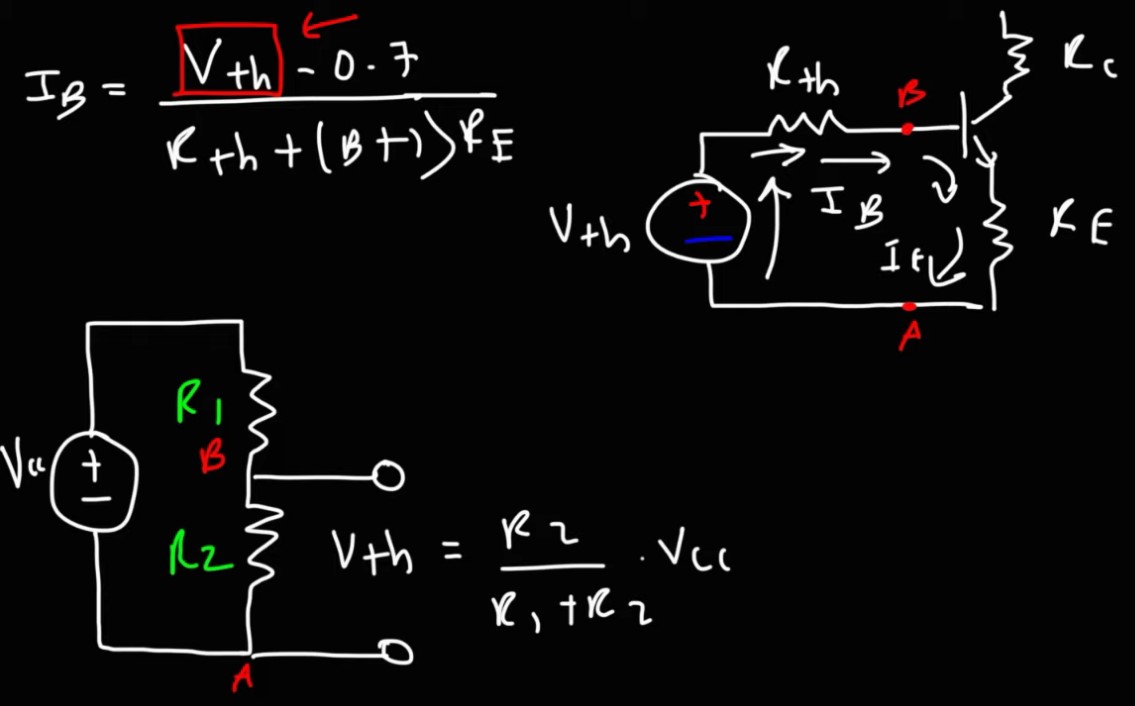 I_B = (V_th - 0.7) / (R_th + (B+1)R_E)
R_th
B
R_C
V_th
+
−
I_B
I_E
R_E
A
V_cc
+
−
R_1
B
R_2
V_th = R_2 / (R_1 + R_2) · V_CC
A